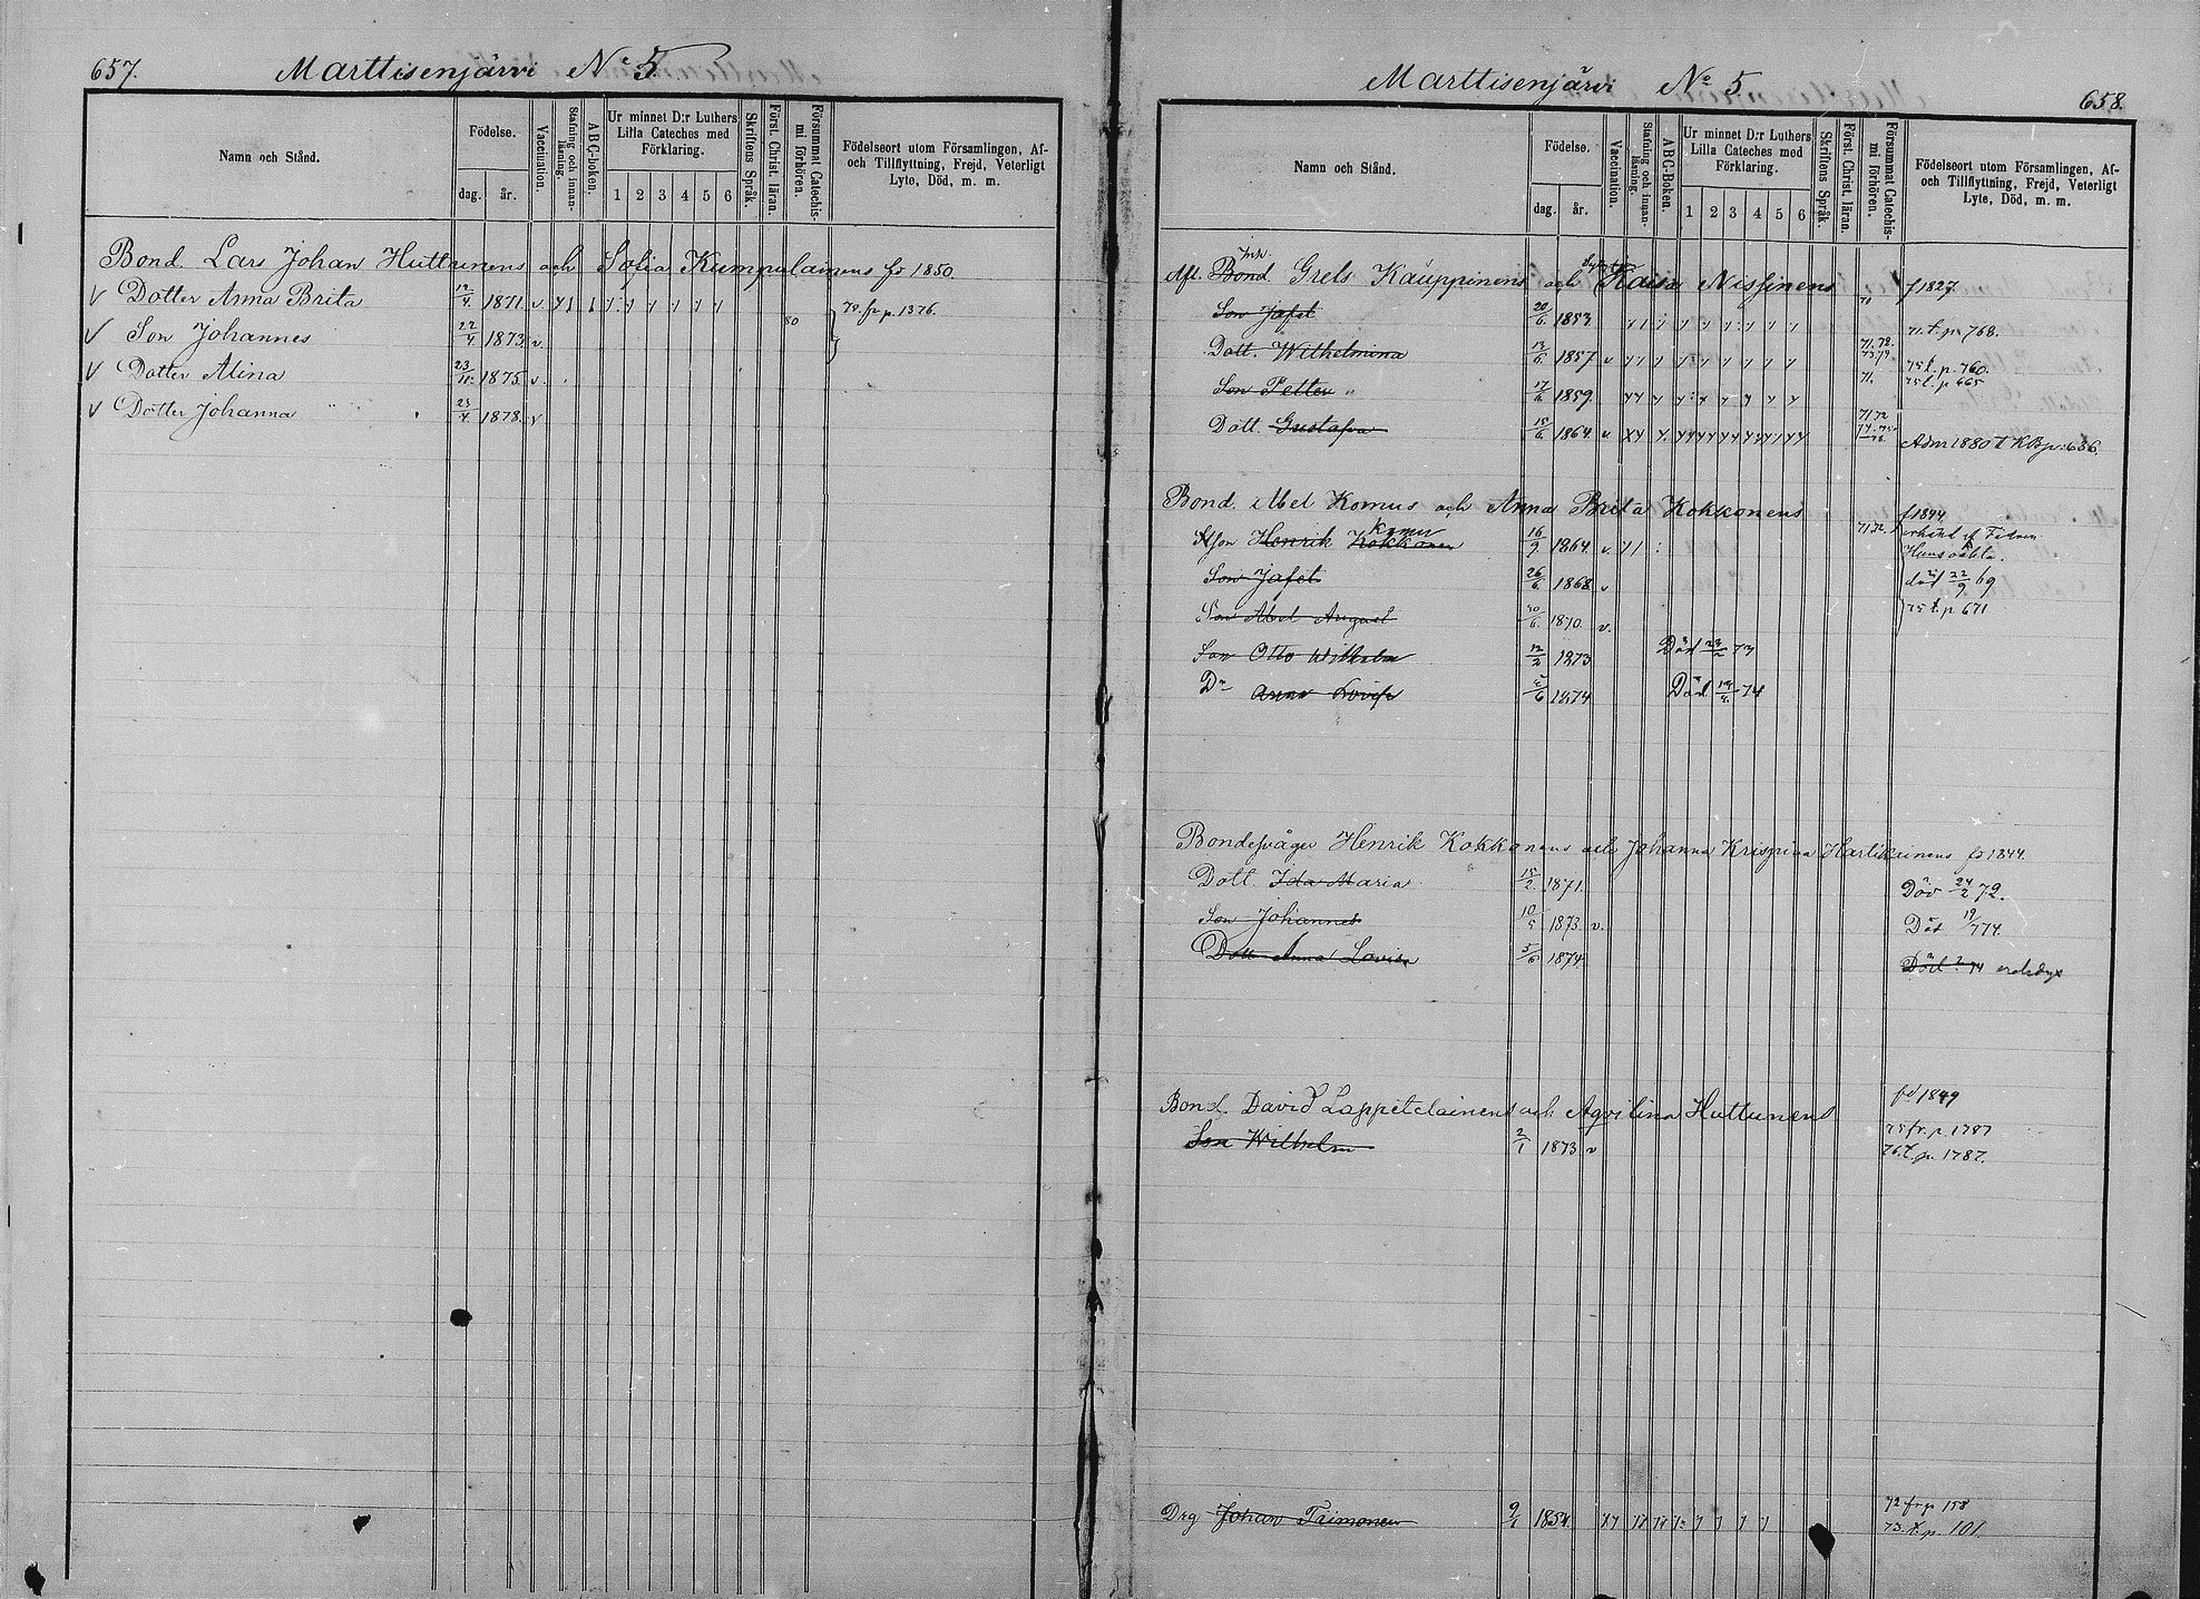 657.
Marttisenjärvi No 5
Namn och Stånd.
Födelse.
dag.
år.
Vaccination.
Stafning och innan-läsning.
ABC-boken.
Ur minnet D:r Luthers Lilla Cateches med Förklaring.
1 2 3 4 5 6
Skriftens Språk.
Först. Christ. läran.
Försummat Catechis-mi förhören.
Födelseort utom Församlingen, Af- och Tillflyttning, Frejd, Veterligt Lyte, Död, m. m.
Bond. Lars Johan Huttunens och Sofia Kumpulainens fd 1850.
v Dotter Anna Brita 12/4. 1871. v. 70. fr p. 1376.
v Son Johannes 22/4. 1873. v. 80
v Dotter Alina 23/11. 1875. v.
v Dotter Johanna 23/4. 1878. v
Marttisenjärvi No 5
658.
Namn och Stånd.
Födelse.
dag.
år.
Vaccination.
Stafning och innan-läsning.
ABC-Boken.
Ur minnet D:r Luthers Lilla Cateches med Förklaring.
1 2 3 4 5 6
Skriftens Språk.
Först. Christ. läran.
Försummat Catechis-mi förhören.
Födelseort utom Församlingen, Af- och Tillflyttning, Frejd, Veterligt Lyte, Död, m. m.
Inh.
Afl. Bond Grels Kauppinens och Kaisa Nissinens f 1827.
Son Jafet 20/6. 1853. 70 71. t. p. 768.
Dott. Wilhelmina 13/6 1857. v 71. 72. 73. 79. 75 t. p. 760.
Son Petter 17/6 1859. 71. 75 t. p 665
Dott. Gustafva 15/6. 1864. v. 71 72 Adm 1880 t KB p. 636.
Bond. Abel Komus och Anna Brita Kokkonens f 1844
Son Henrik Kokkonen Komu 16/9. 1864. v. 71 72.
Son Jafet 26/6. 1868. v död 22/9 69
Son Abel August 30/6. 1870. v. 75 t. p 671
Son Otto Wilhelm 12/2 1873 Död 23/2 73
Dr Anna Lovisa 5/6 1874 Död. 74
Bondesvåger Henrik Kokkonens och Johanna Krispina Hartikainens fd 1844.
Dott. Ida Maria 15/2. 1871. Död 24/2 72.
Son Johannes 10/5 1873. v. Död 19/7 74.
Dott Anna Lovisa 5/6 1874. Död 74
Bond. David Lappetelainens och Agvilina Huttunens fd 1849
75 fr. p. 1787
Son Wilhelm 2/1 1873 v 76. t. p. 1787.
Drg Johan Tiimonen 9/1 1854. 72 fr p 158
73. t. p. 101.